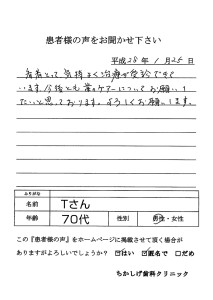 患者様の声をお聞かせ下さい
平成28年1月25日
患者として気持よく治療が受診できて
います。今後とも歯のケアーについてお願いし
たいと思っております。よろしくお願いします。
ふりがな
名前 Tさん
年齢 70代 性別 男性・女性
この『患者様の声』をホームページに掲載させて頂く場合が
ありますがよろしいでしょうか? ☑はい ☑匿名で □だめ
ちかしげ歯科クリニック